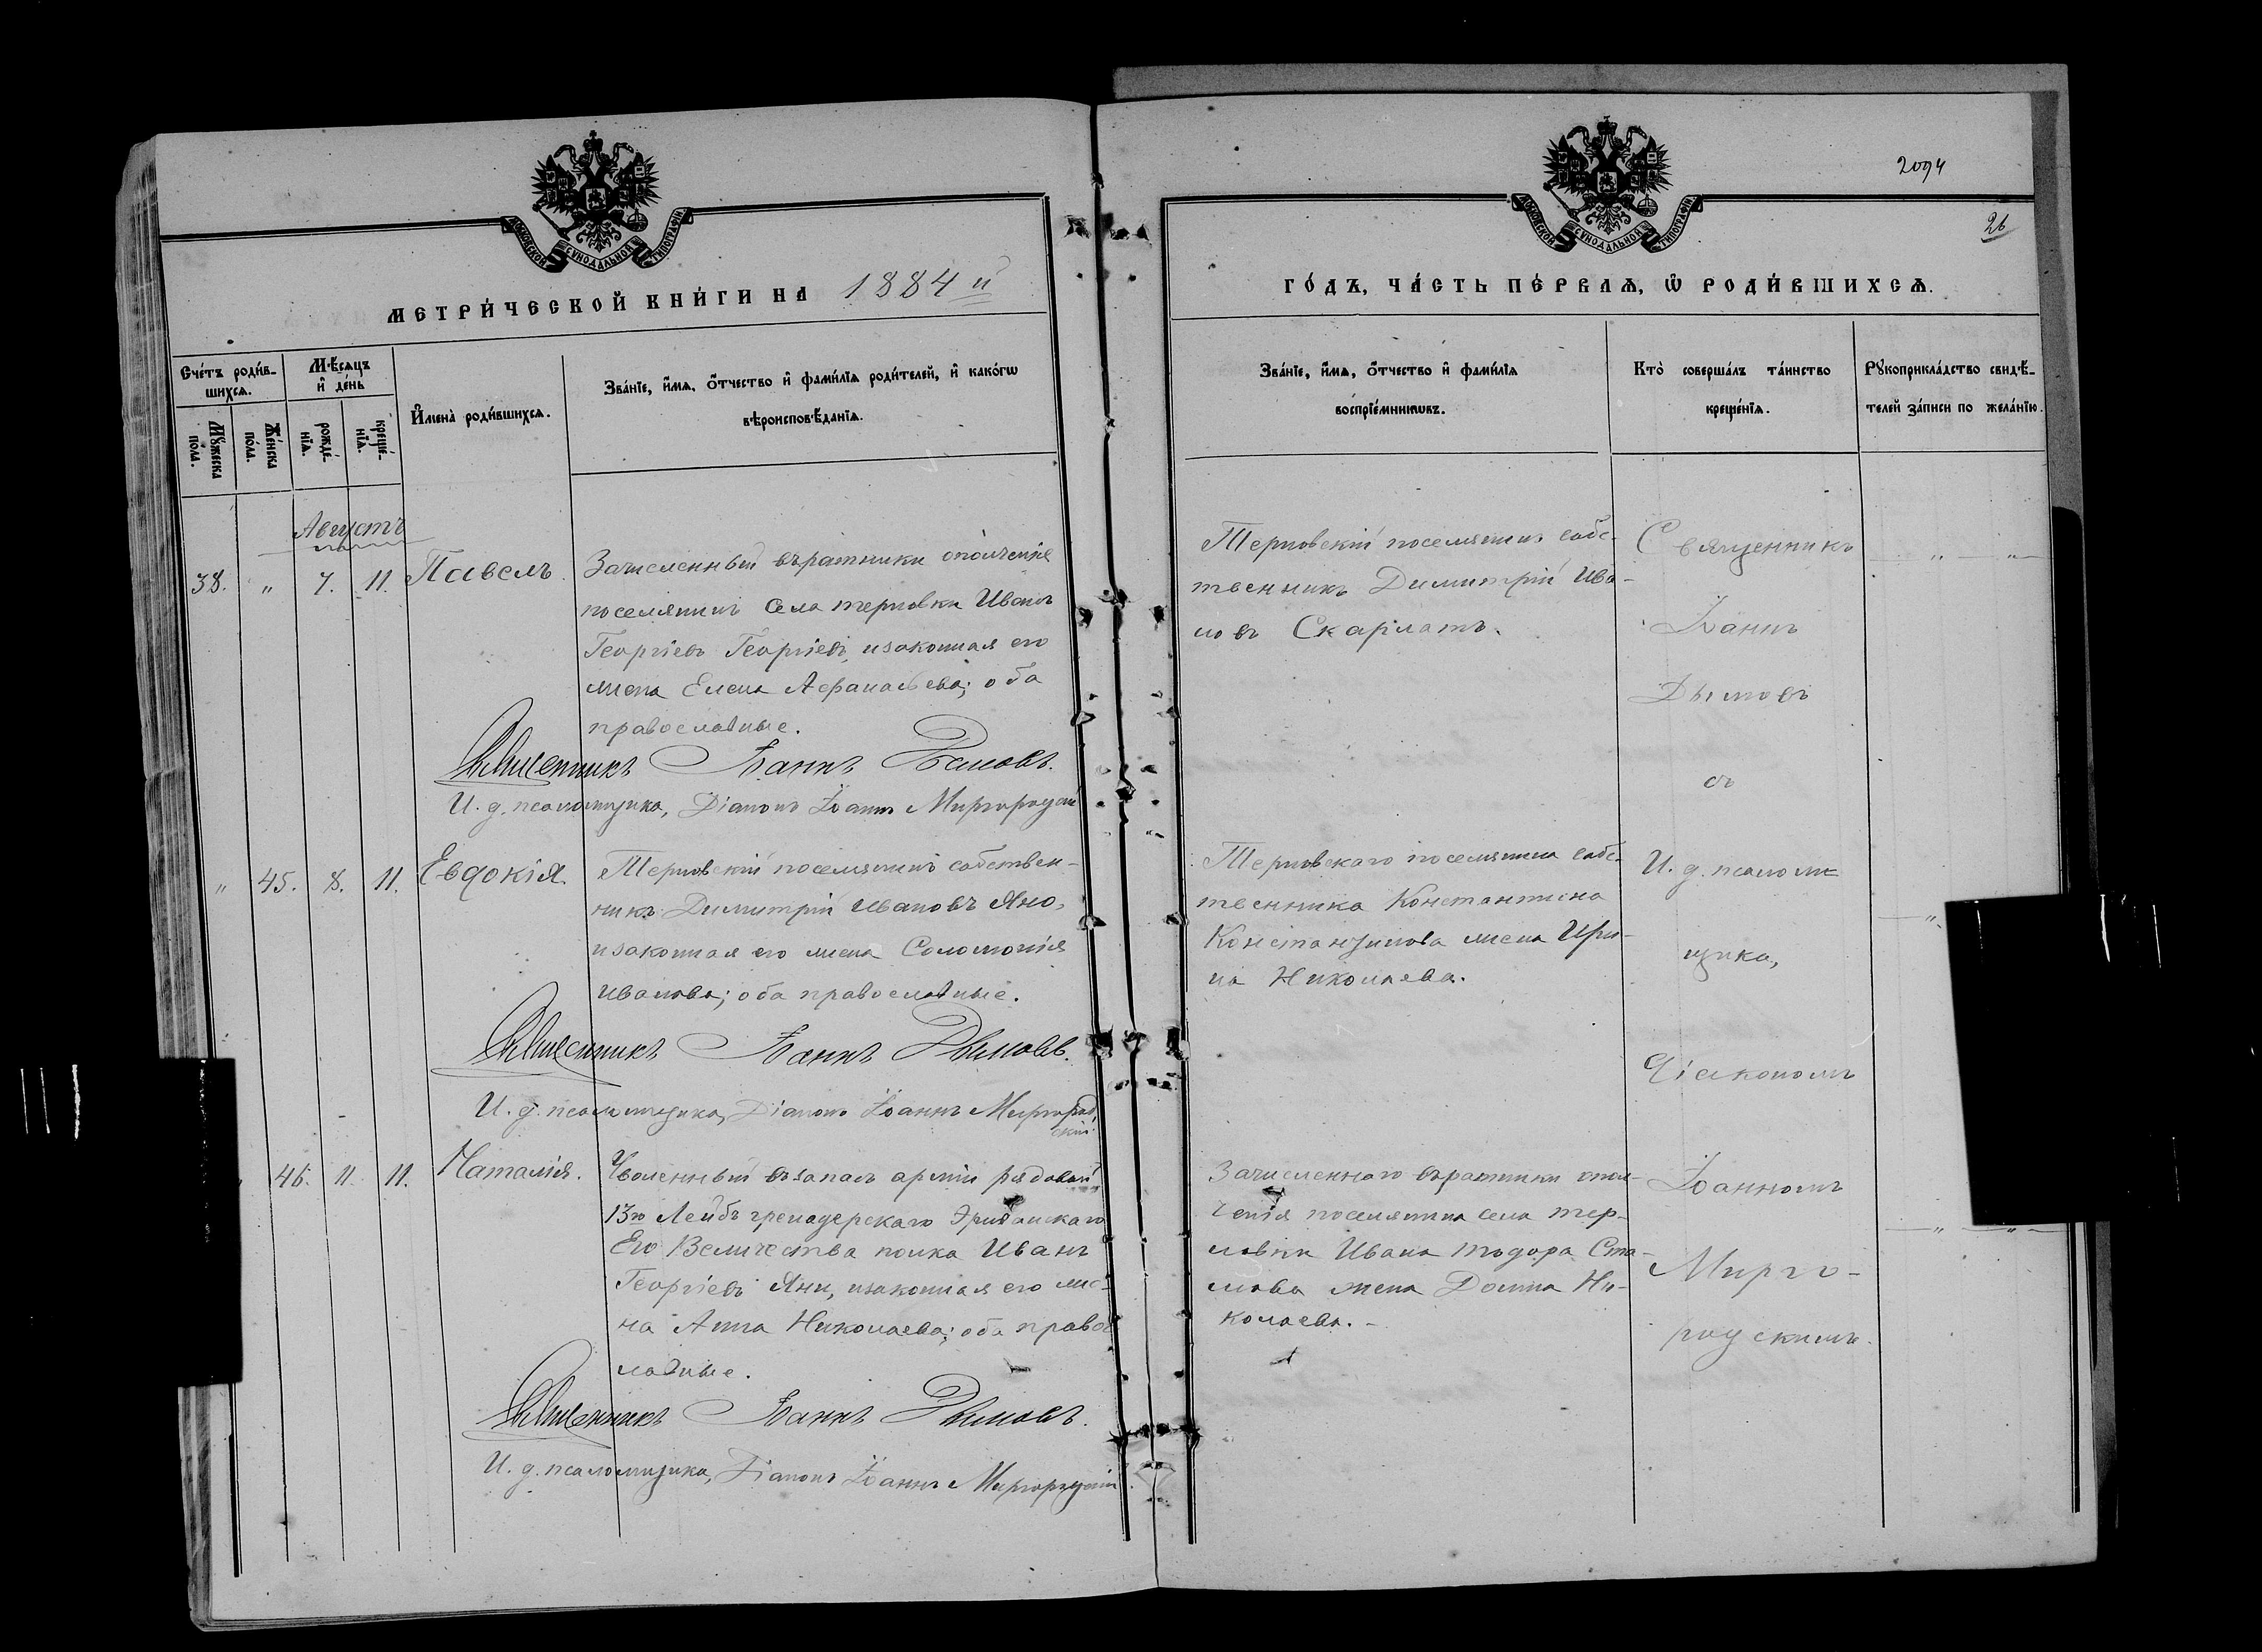 МОСКОВСКОЙ СѴНОДАЛЬНОЙ ТИПОГРАФІИ
МЕТРИ́ЧЕСКОЙ КНИ́ГИ НА 1884 й
Сче́тъ роди́в-
шихсѧ.
Мѣ́сѧцъ
и҆ де́нь
И҆мена̀ роди́вшихсѧ.
Зва́нїе, и҆́мѧ, ѻ҆́тчество и҆ фами́лїѧ роди́телей, и҆ како́гѡ
вѣроисповѣ́данїѧ.
Мꙋ́жеска
по́ла.
Же́нска
по́ла.
рожде́-
нїѧ.
креще́-
нїѧ.
Августъ
38. " 7. 11. Павелъ.
Зачисленный въ ратники ополченія
поселянинъ села терновки Иванъ
Георгіевъ Георгіевъ, и законная его
жена Елена Афанасьева; оба
православные.
Священникъ Іоаннъ Дымовъ.
И. д. псаломщика, Діаконъ Іоаннъ Миргородскій
" 45. 8. 11. Евдокія.
Терновскій поселянинъ собствен-
никъ Димитрій Ивановъ Яно,
и законная его жена Соломонія
Иванова; оба православные.
Священникъ Іоаннъ Дымовъ.
И. д. псаломщика, Діаконъ Іоаннъ Миргород
скій.
46. 11. 11. Наталія.
Уволенный въ запасъ арміи рядовой
13го Лейбъ гренадерскаго Эриванскаго
Его Величества полка Иванъ
Георгіевъ Яни, и законная его же-
на Анна Николаева; оба правос
лавные.
Священникъ Іоаннъ Дымовъ.
И. д. псаломщика, Діаконъ Іоаннъ Миргородскій
2094
26
МОСКОВСКОЙ СѴНОДАЛЬНОЙ ТИПОГРАФІИ
ГО́ДЪ, ЧА́СТЬ ПЕ́РВАѦ, Ѡ҆ РОДИ́ВШИХСѦ.
Зва́нїе, и҆́мѧ, ѻ҆́тчество и҆ фами́лїѧ
воспрїе́мникѡвъ.
Кто̀ соверша́лъ та́инство
креще́нїѧ.
Рꙋкоприкла́дство свидѣ́-
телей за́писи по жела́нїю.
Терновскій поселянинъ собс-
твенникъ Димитрій Ива-
новъ Скарлатъ.
Терновскаго поселянина собс-
твенника Константина
Константинова жена Ири-
на Николаева.
Зачисленнаго въ ратники опол-
ченія поселянина села тер-
новки Ивана Тодора Ста-
нова жена Домна Ни-
колаева.
Священникъ
Іоаннъ
Дымовъ
съ
И. д. псалом-
щика,
Діакономъ
Іоанномъ
Мирго-
родскимъ.